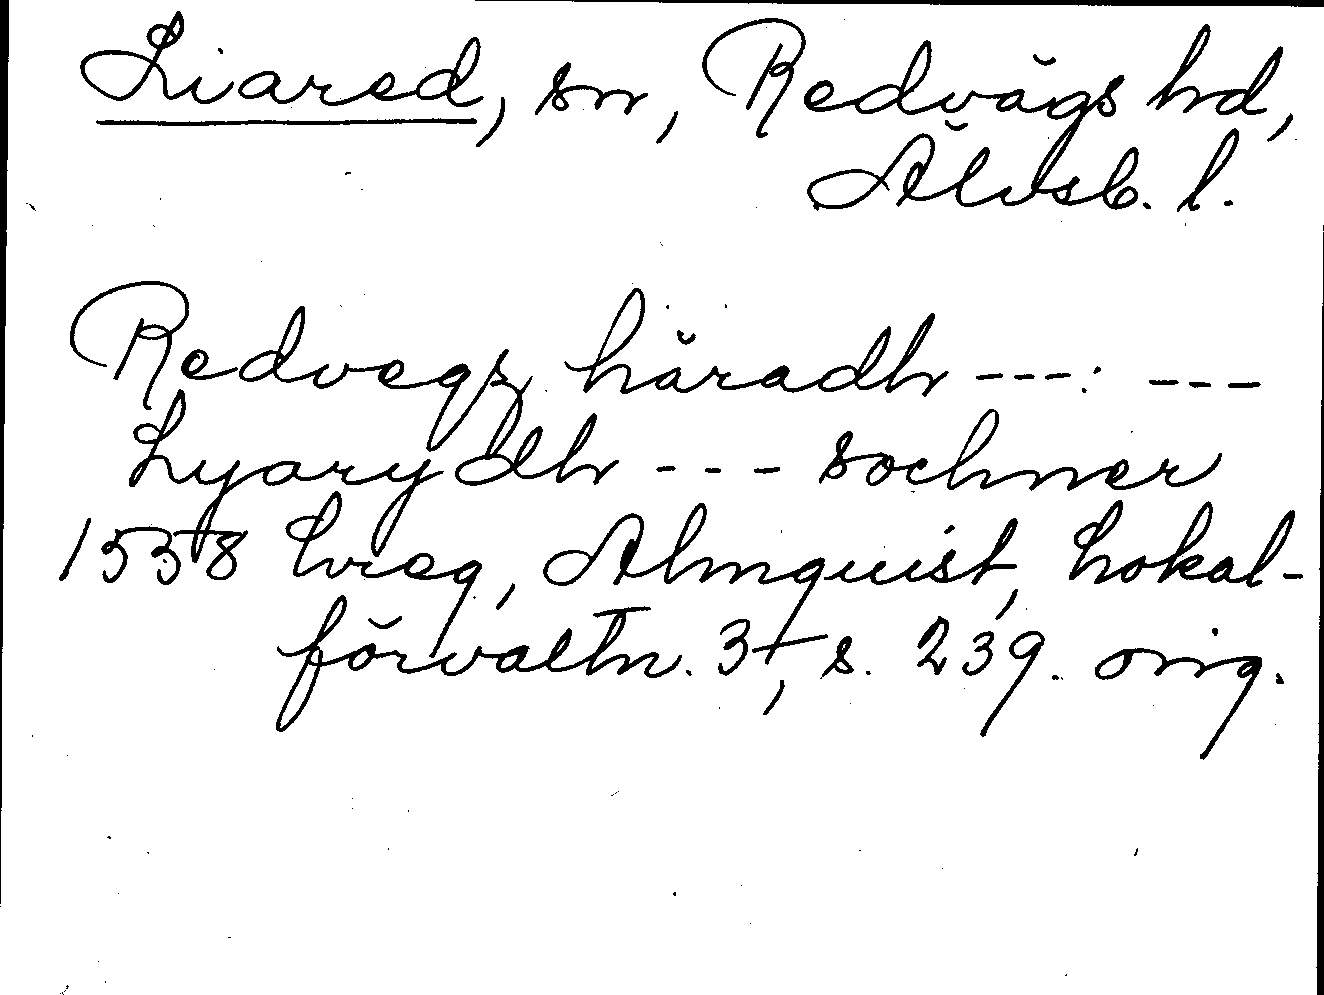 Liared, sn, Redvägs hd,
Älvsb. l.
Redvegz häradh ---: ---
Lyarydh --- sochner
1538 Lvreg, Almquist, Lokal-
förvaltn. 3, s. 239. orig.